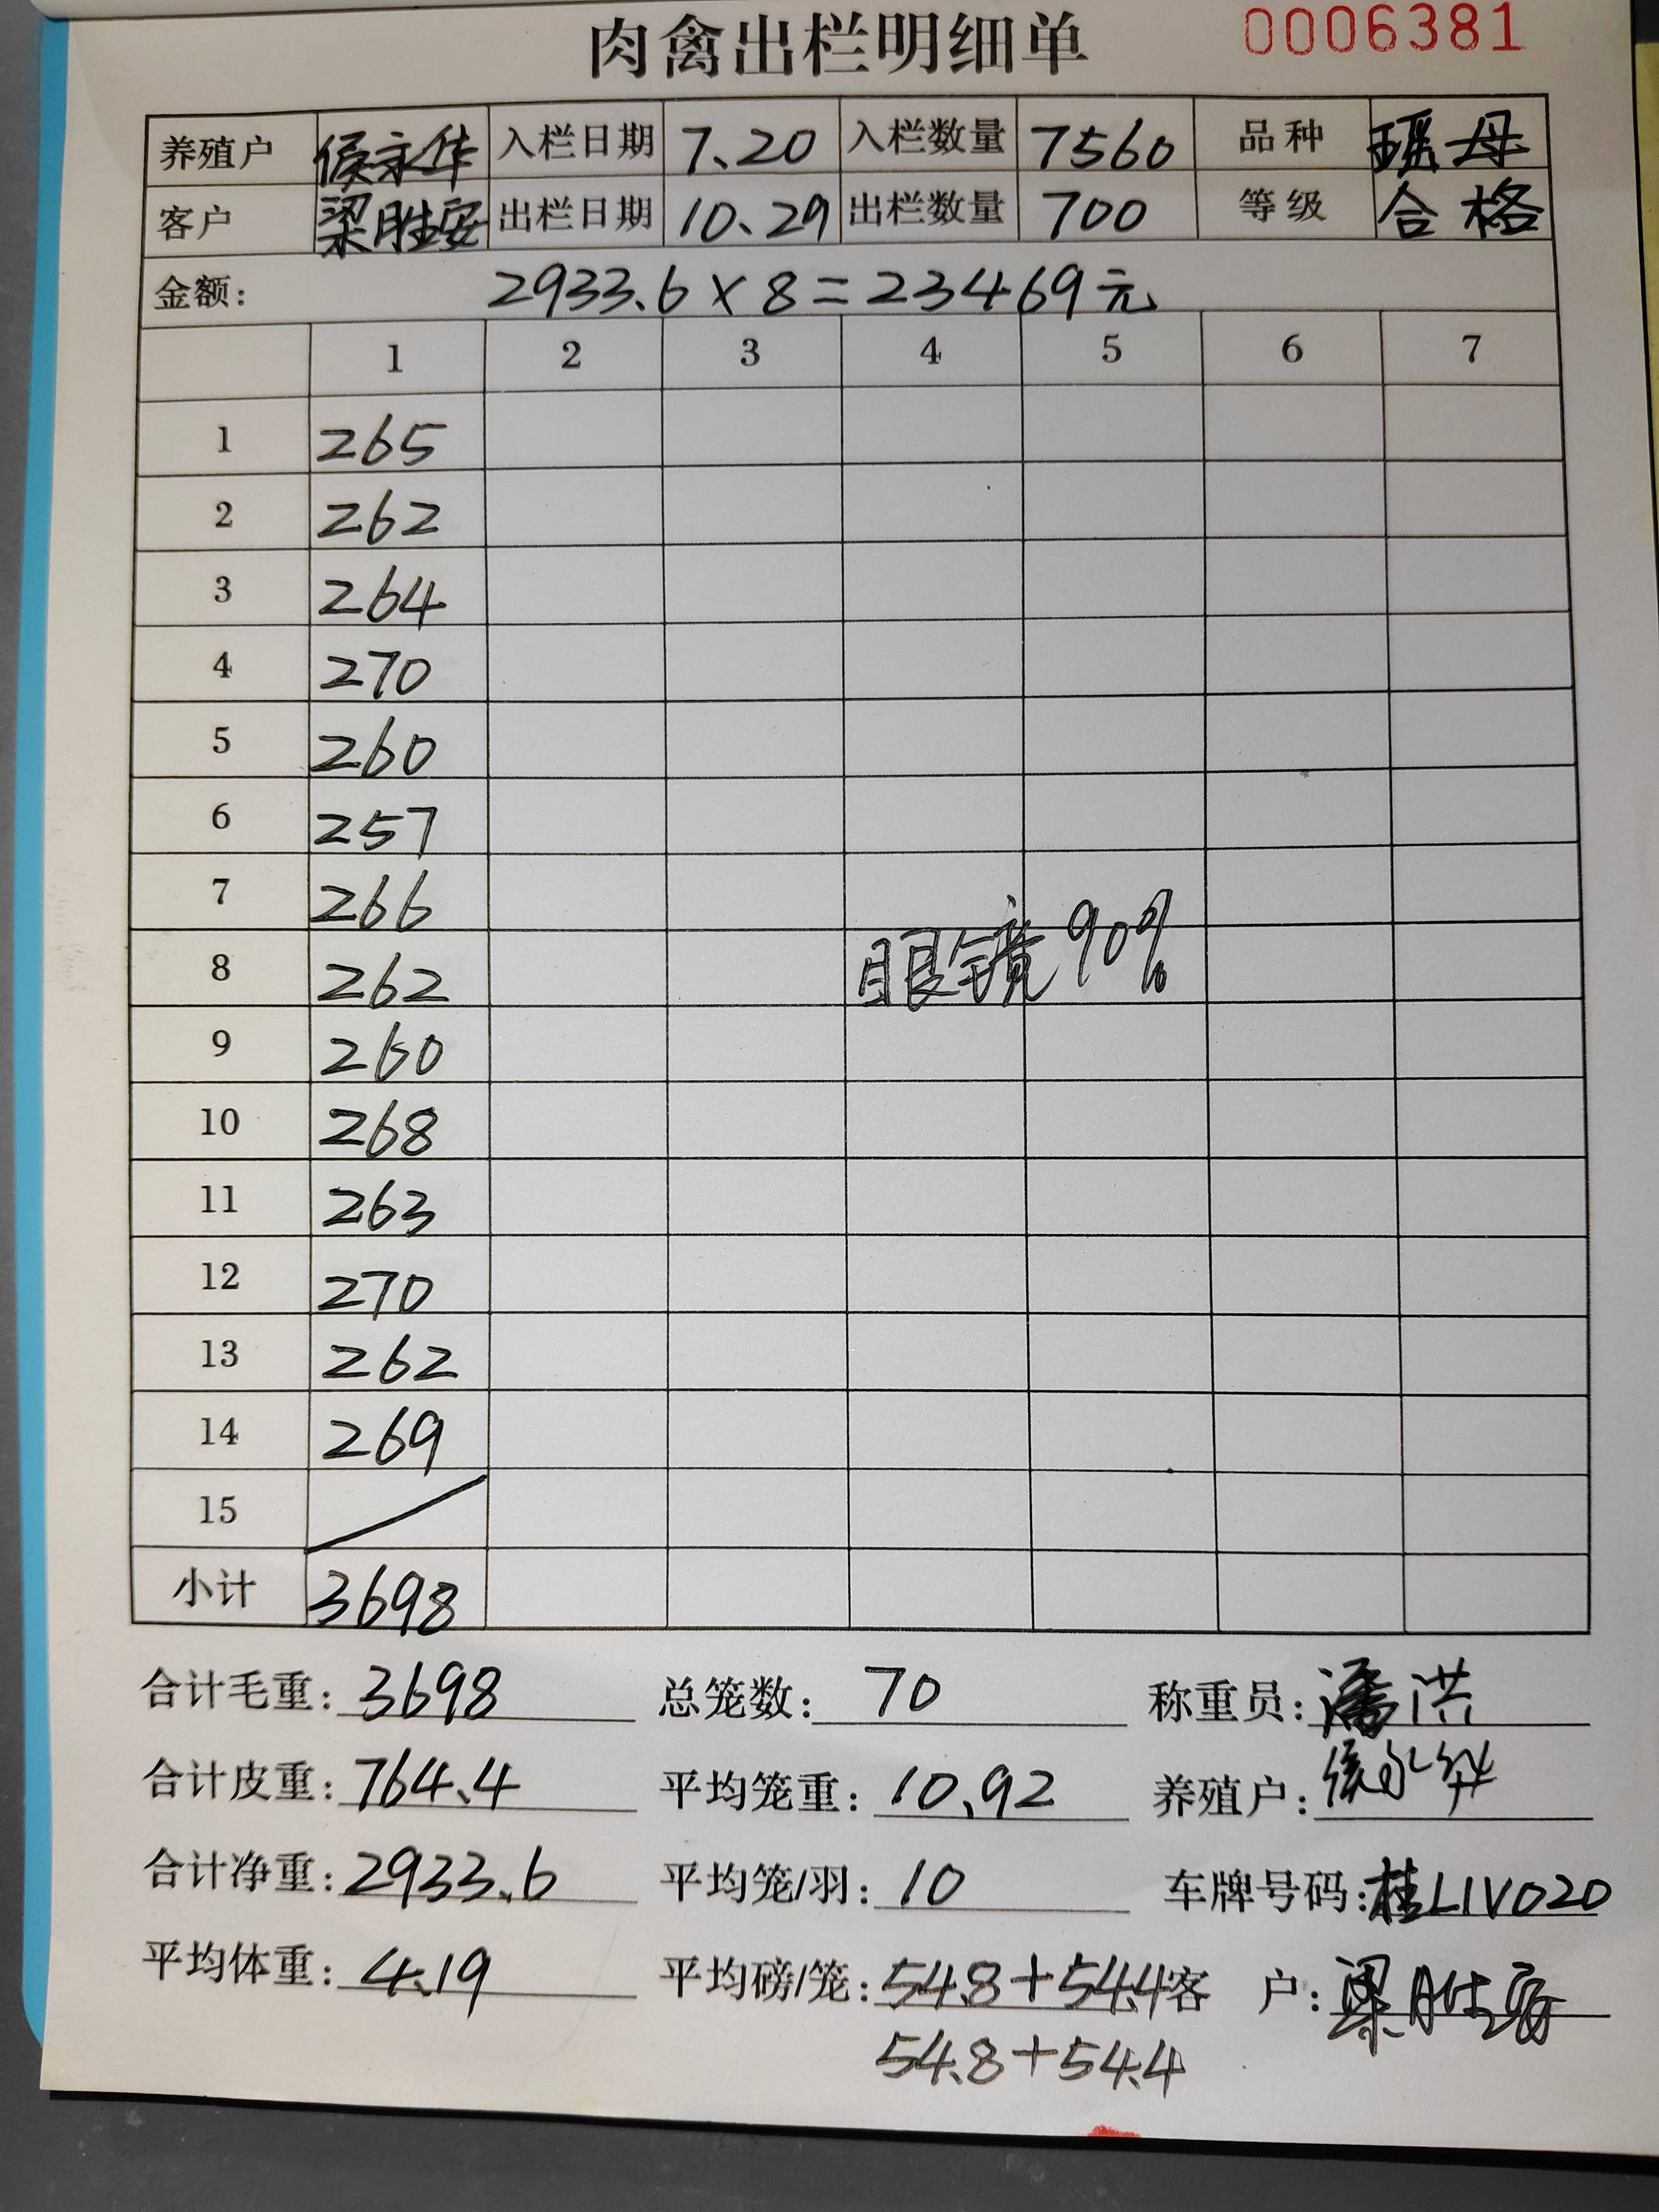 肉禽出栏明细单 0006381
养殖户 侯永华 入栏日期 7.20 入栏数量 7560 品种 瑶母
客户 梁胜安 出栏日期 10.29 出栏数量 700 等级 合格
金额: 2933.6×8=23469元
1 2 3 4 5 6 7
1 265
2 262
3 264
4 270
5 260
6 257
7 266
8 262 眼镜90%
9 260
10 268
11 263
12 270
13 262
14 269
15
小计 3698
合计毛重: 3698 总笼数: 70 称重员: 潘洪
合计皮重: 764.4 平均笼重: 10.92 养殖户: 侯永华
合计净重: 2933.6 平均笼/羽: 10 车牌号码: 桂L1V020
平均体重: 4.19 平均磅/笼: 54.8+54.4 客户: 梁胜安
54.8+54.4